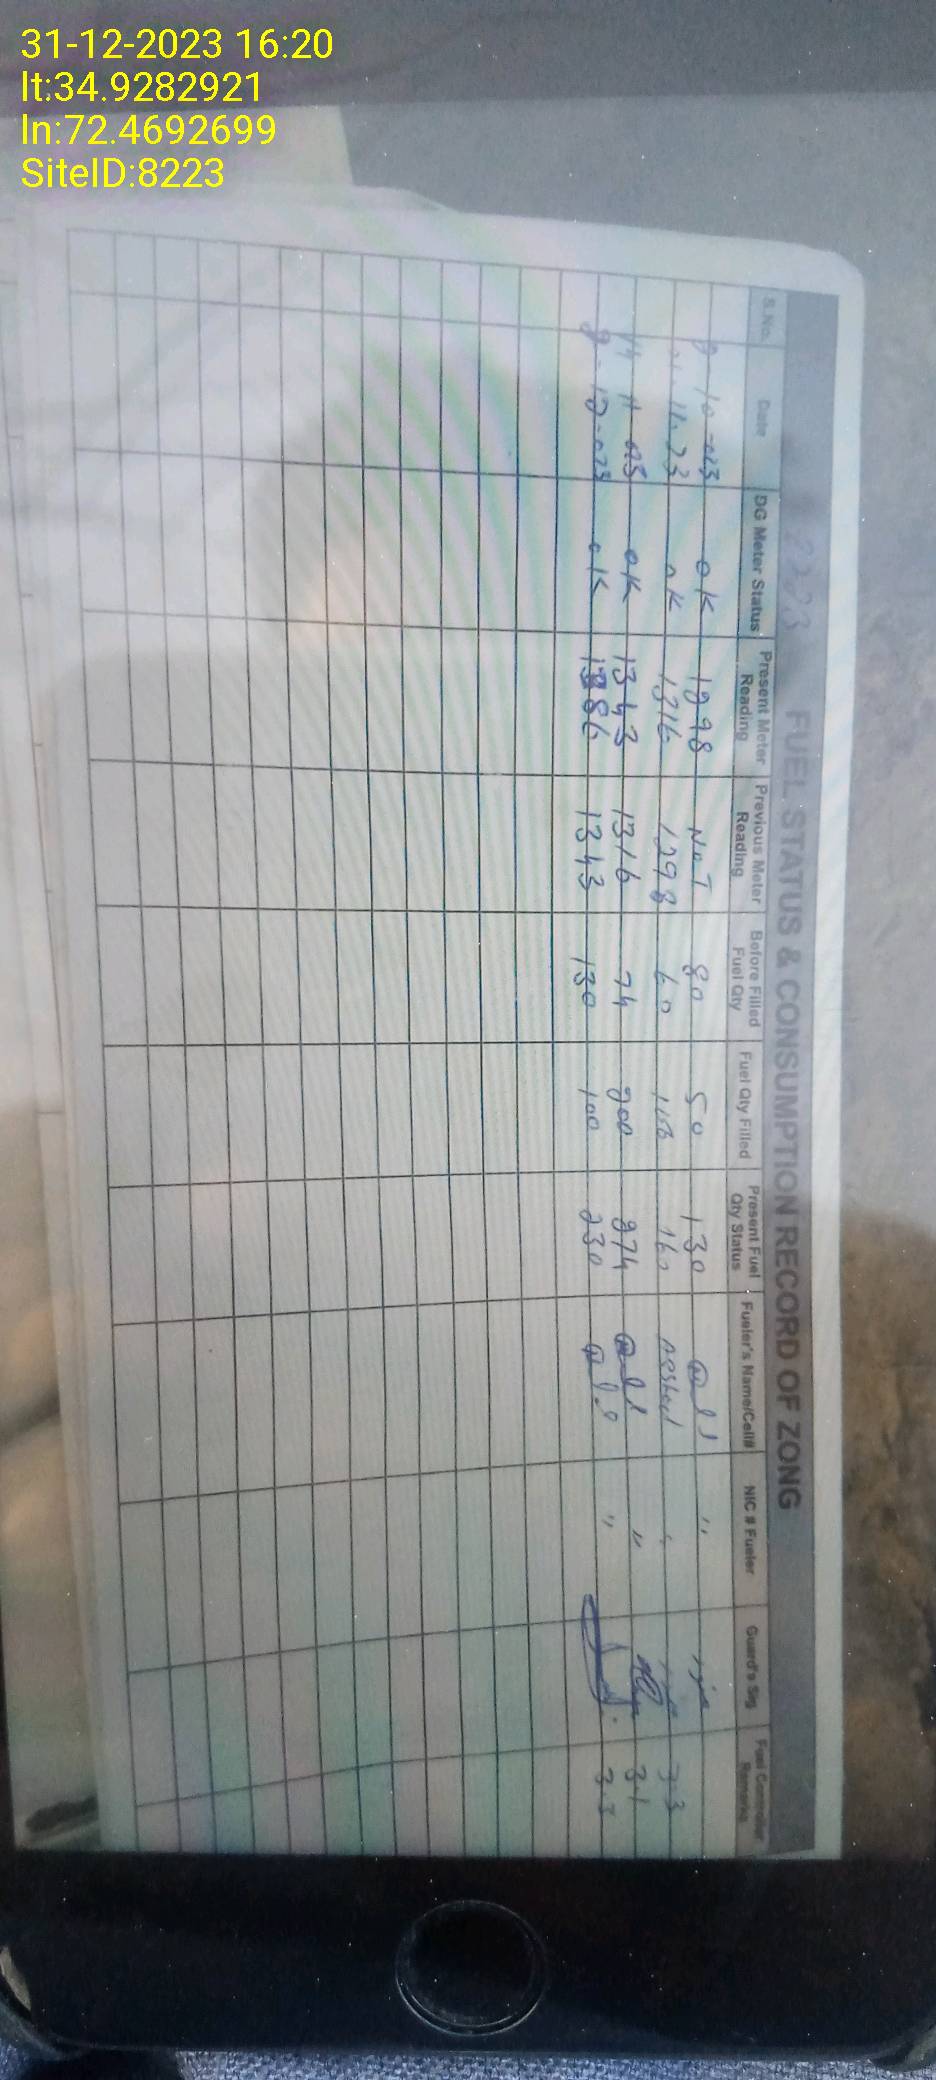 31-12-2023 16:20
lt:34.9282921
ln:72.4692699
SiteID:8223
FUEL STATUS & CONSUMPTION RECORD OF ZONG
S.No. Date DG Meter Status Present Meter Reading Previous Meter Reading Before Filled Fuel Qty Fuel Qty Filled Present Fuel Qty Status Fueler's Name/Cell# NIC # Fueler Guard's Sig Fuel Controller Remarks
ok 1298 NoT 80 50 130 "
11-23 ok 1316 1298 60 160 " 3.3
ok 1343 1316 74 200 274 " 31
ok 1386 1343 130 100 230 " 3.3